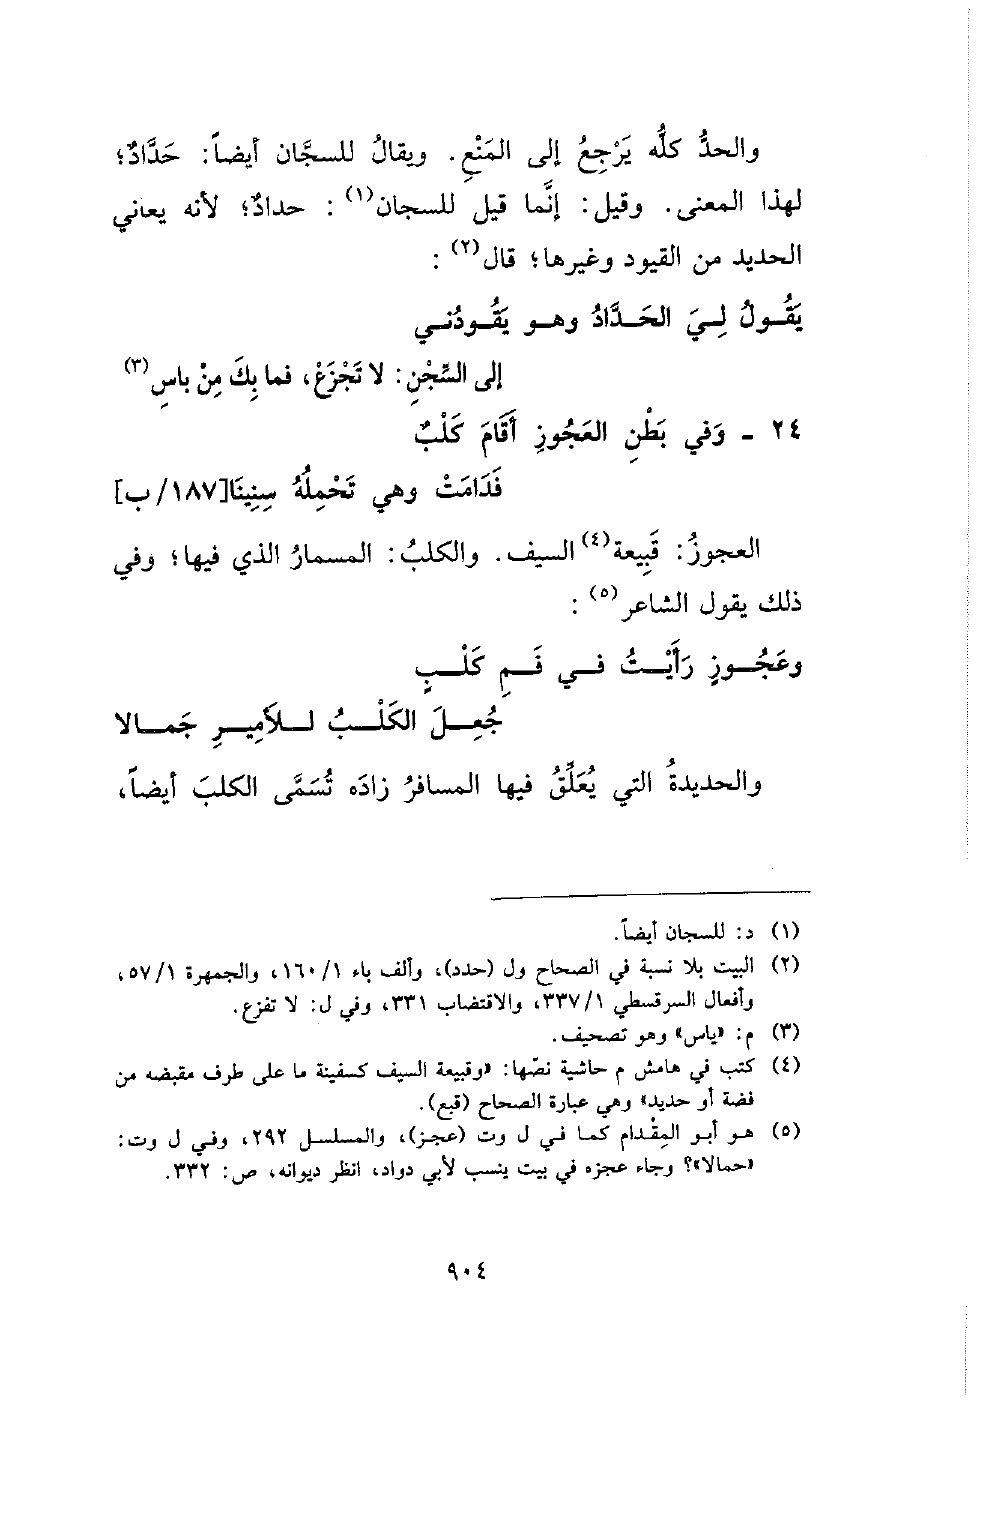 والحدُّ كلُّه يَرْجِعُ إلى المَنْعِ. ويقالُ للسجَّان أيضاً: حَدَّادٌ؛
لهذا المعنى. وقيل: إنَّما قيل للسجان(١): حدادٌ؛ لأنه يعاني
الحديد من القيود وغيرها؛ قال(٢):
يَقُـولُ لِـيَ الحَـدَّادُ وهـو يَقُـودُنـي
إلى السِّجْنِ: لا تَجْزَعْ، فما بِكَ مِنْ باسِ(٣)
٢٤ - وَفي بَطْنِ العَجُوزِ أَقَامَ كَلْبٌ
فَدَامَتْ وهي تَحْمِلُهُ سِنِينَا[١٨٧/ب]
العجوزُ: قَبِيعة(٤) السيف. والكلبُ: المسمارُ الذي فيها؛ وفي
ذلك يقول الشاعر(٥):
وعَجُـوزٍ رَأَيْـتُ فـي فَـمِ كَلْـبٍ
جُعِـلَ الكَلْـبُ لـلأَمِيـرِ جَمـالا
والحديدةُ التي يُعَلِّقُ فيها المسافرُ زادَه تُسَمَّى الكلبَ أيضاً،
(١) د: للسجان أيضاً.
(٢) البيت بلا نسبة في الصحاح ول (حدد)، وألف باء ١٦٠/١، والجمهرة ٥٧/١،
وأفعال السرقسطي ٣٣٧/١، والاقتضاب ٣٣١، وفي ل: لا تفزع.
(٣) م: «ياس» وهو تصحيف.
(٤) كتب في هامش م حاشية نصّها: «وقبيعة السيف كسفينة ما على طرف مقبضه من
فضة أو حديد» وهي عبارة الصحاح (قبع).
(٥) هو أبو المِقْدام كما في ل وت (عجز)، والمسلسل ٢٩٢، وفي ل وت:
«حمالا»؟ وجاء عجزه في بيت ينسب لأبي دواد، انظر ديوانه، ص: ٣٣٢.
٩٠٤